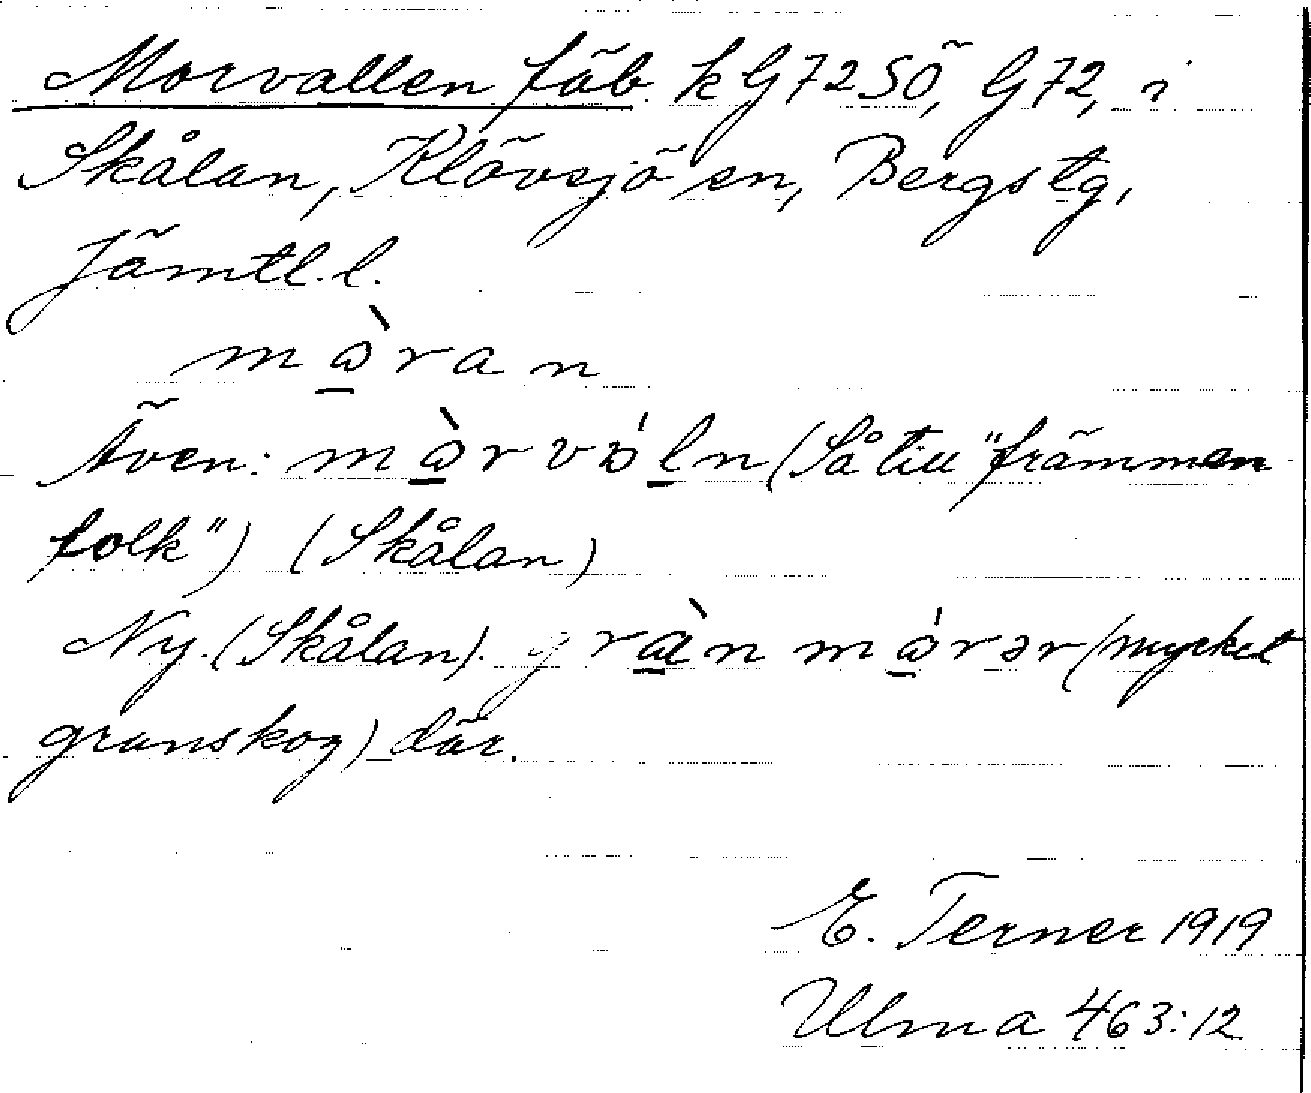 Morvallen fäb. k G72SÖ, G72, i
Skålan, Klövsjö sn, Bergs tg,
Jämtl. l.
mòran
Även: mòrvóln (Så till "främmen
folk") (Skålan)
Ny. (Skålan). gràn mórər (mycket
granskog) där.
E. Terner 1919
Ulma 463:12